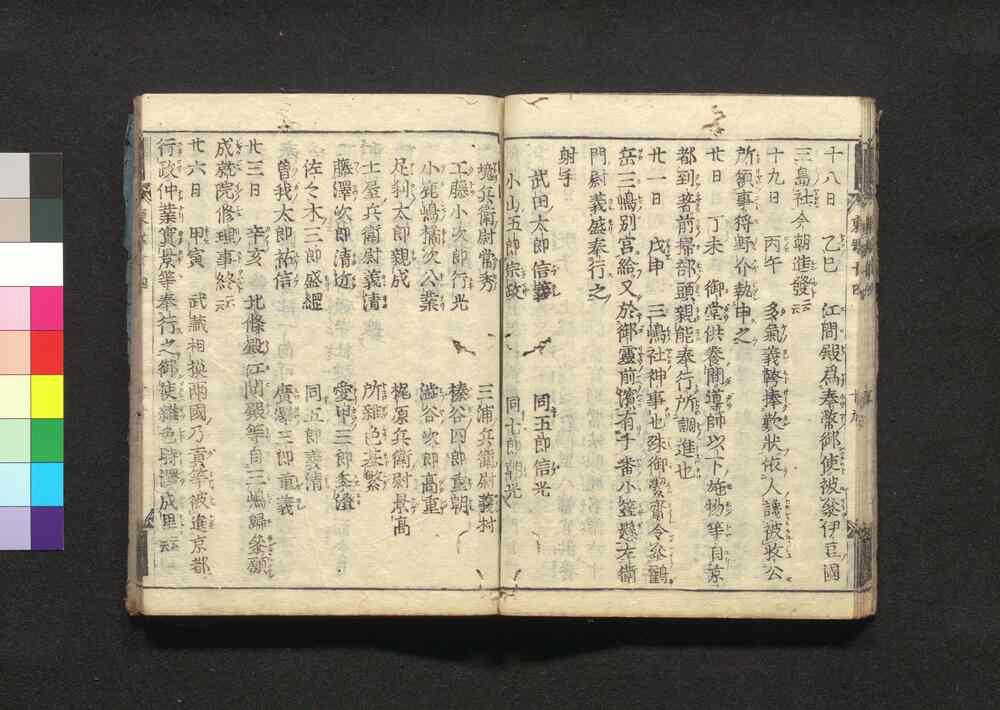 十八日 乙巳 江間殿爲奉幣御使被參伊豆國
三島社今朝進發云云
十九日 丙午 多氣義幹捧歎狀依人讒被收公
所領事狩野介執申之
廿日 丁未 御堂供養間導師以下施物等自京
都到著前掃部頭親能奉行所調進也
廿一日 戊申 三嶋社神事也殊御齋令參鶴
岳三嶋別宮給又於御靈前濱有千番小笠懸左衞
門尉義盛奉行之
射手
武田太郎信義 同五郎信光
小山五郎宗政 同七郎朝光
兵衞尉常秀 三浦兵衞尉義村
工藤小次郎行光 榛谷四郎重朝
小鹿嶋橘次公業 澁谷次郎高重
足利太郎親成 梶原兵衞尉景高
土屋兵衞尉義淸 所雜色基繁
藤澤次郎淸近 愛甲三郎季澄
佐々木三郎盛綱 同五郎義淸
曾我太郎祐信 廣澤三郎
廿三日 辛亥 北條殿江間殿等自三嶋歸參願
成就院修理事終云云
廿六日 甲寅 武藏相摸兩國乃貢等被進京都
行政仲業實景等奉行之御使雜色時澤成里云云